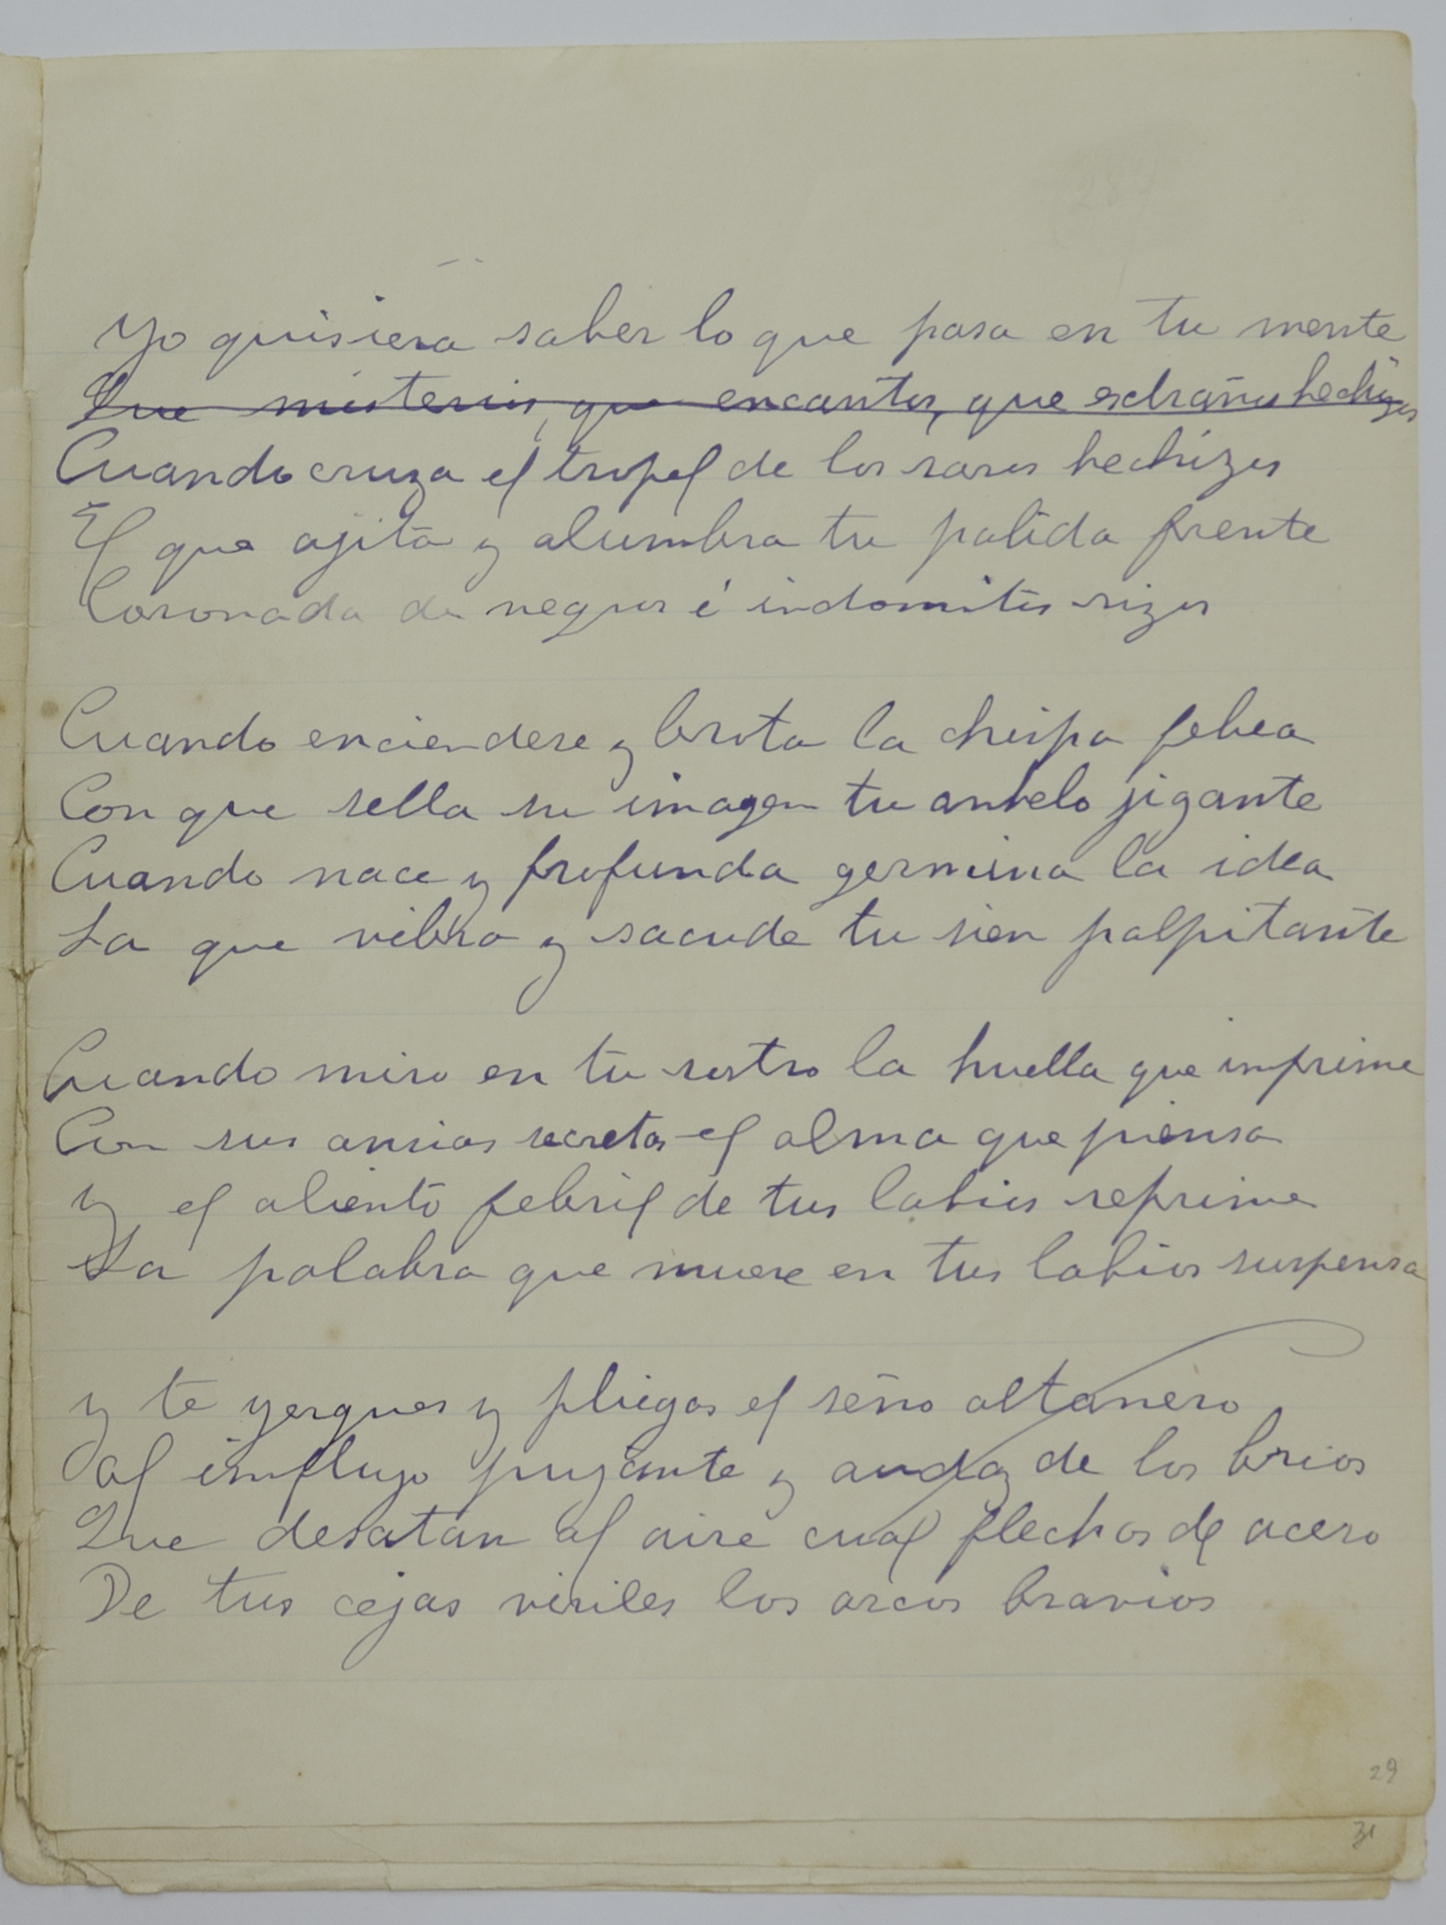 Yo quisiera saber lo que pasa en tu mente
Que misterios, que encantos, que extraños hechizos
Cuando cruza el tropel de los raros hechizos
El que ajita y alumbra tu palida frente
Coronada de negros é indomitos rizos
Cuando enciendese y brota la chispa febea
Con que sella su imagen tu anhelo jigante
Cuando nace y profunda germina la idea
La que vibra y sacude tu sien palpitante
Cuando miro en tu rostro la huella que imprime
Con sus ansias secretas el alma que piensa
y el aliento febril de tus labios reprime
La palabra que muere en tus labios suspensa
y te yergues y pliegas el seño altanero
al influjo pujante y audaz de los brios
Que desatan al aire cual flechas de acero
De tus cejas viriles los arcos bravios
29
31